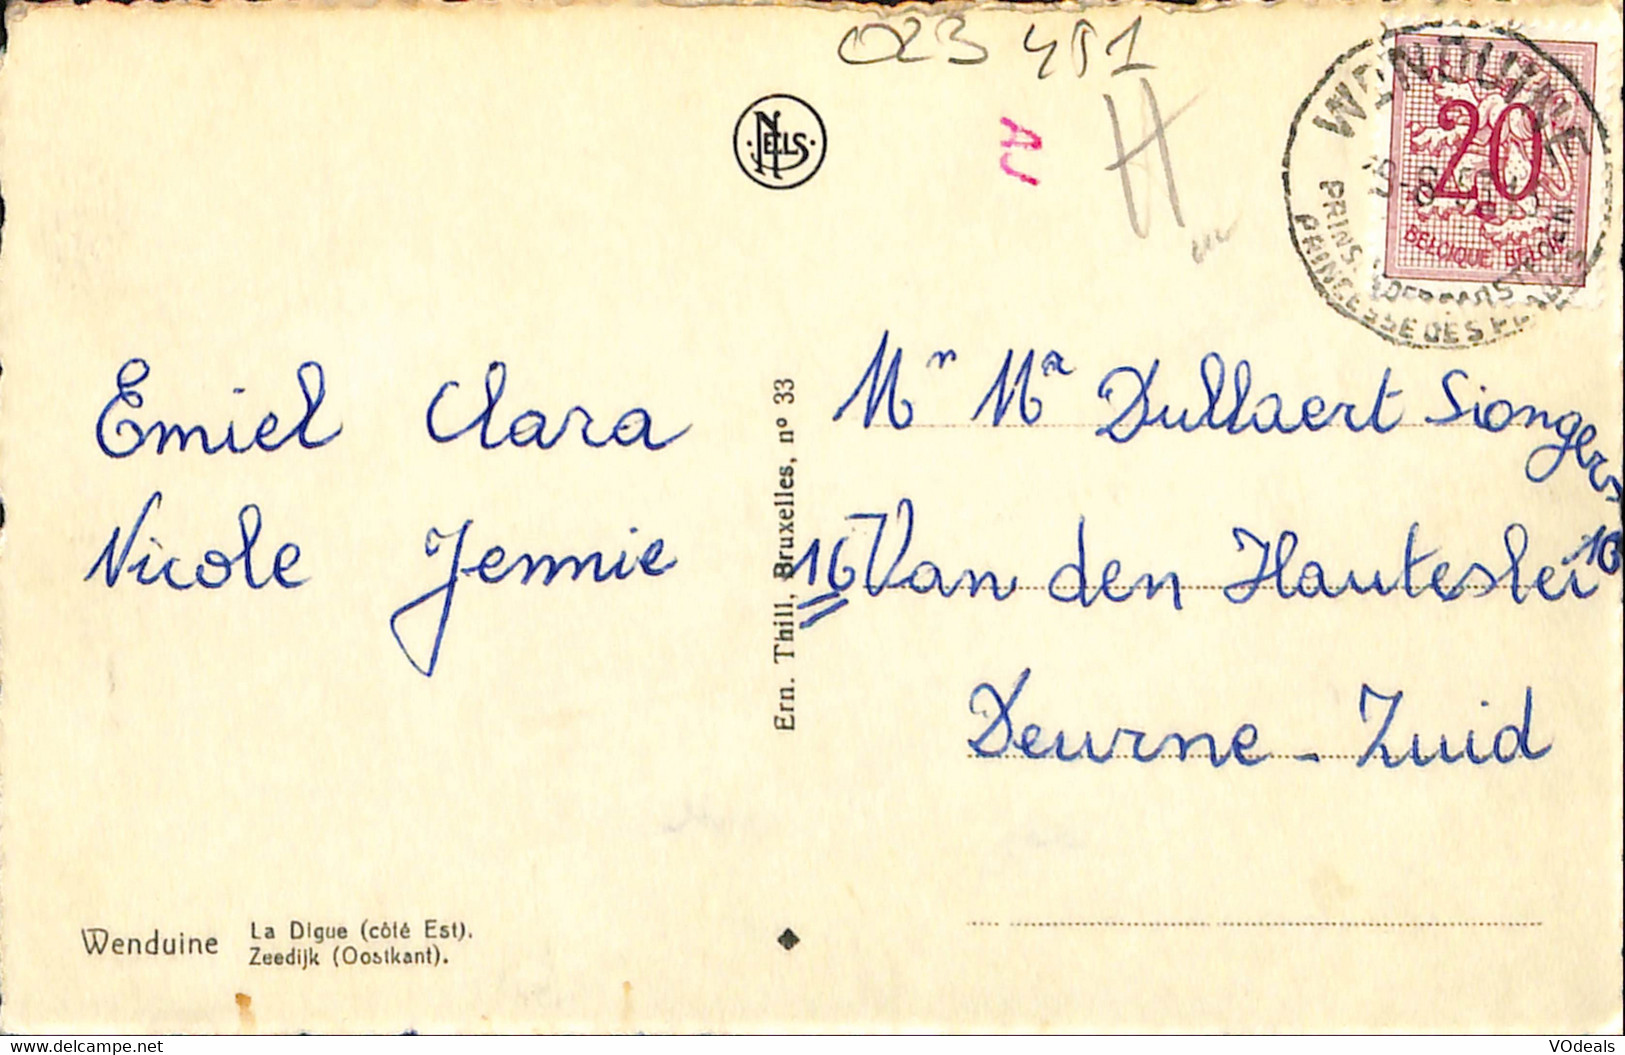 023 451
NELS
AJ
H
WENDUINE
20
BELGIQUE BELGIË
PRINCESSE DES PLAGES
Emiel Clara
Nicole Jennie
Ern. Thill, Bruxelles, n° 33
Mr Me Dullaert Siongers
16 Van den Hautelei 16
Deurne - Zuid
Wenduine
La Digue (côté Est).
Zeedijk (Oostkant).
www.delcampe.com
VOdeals